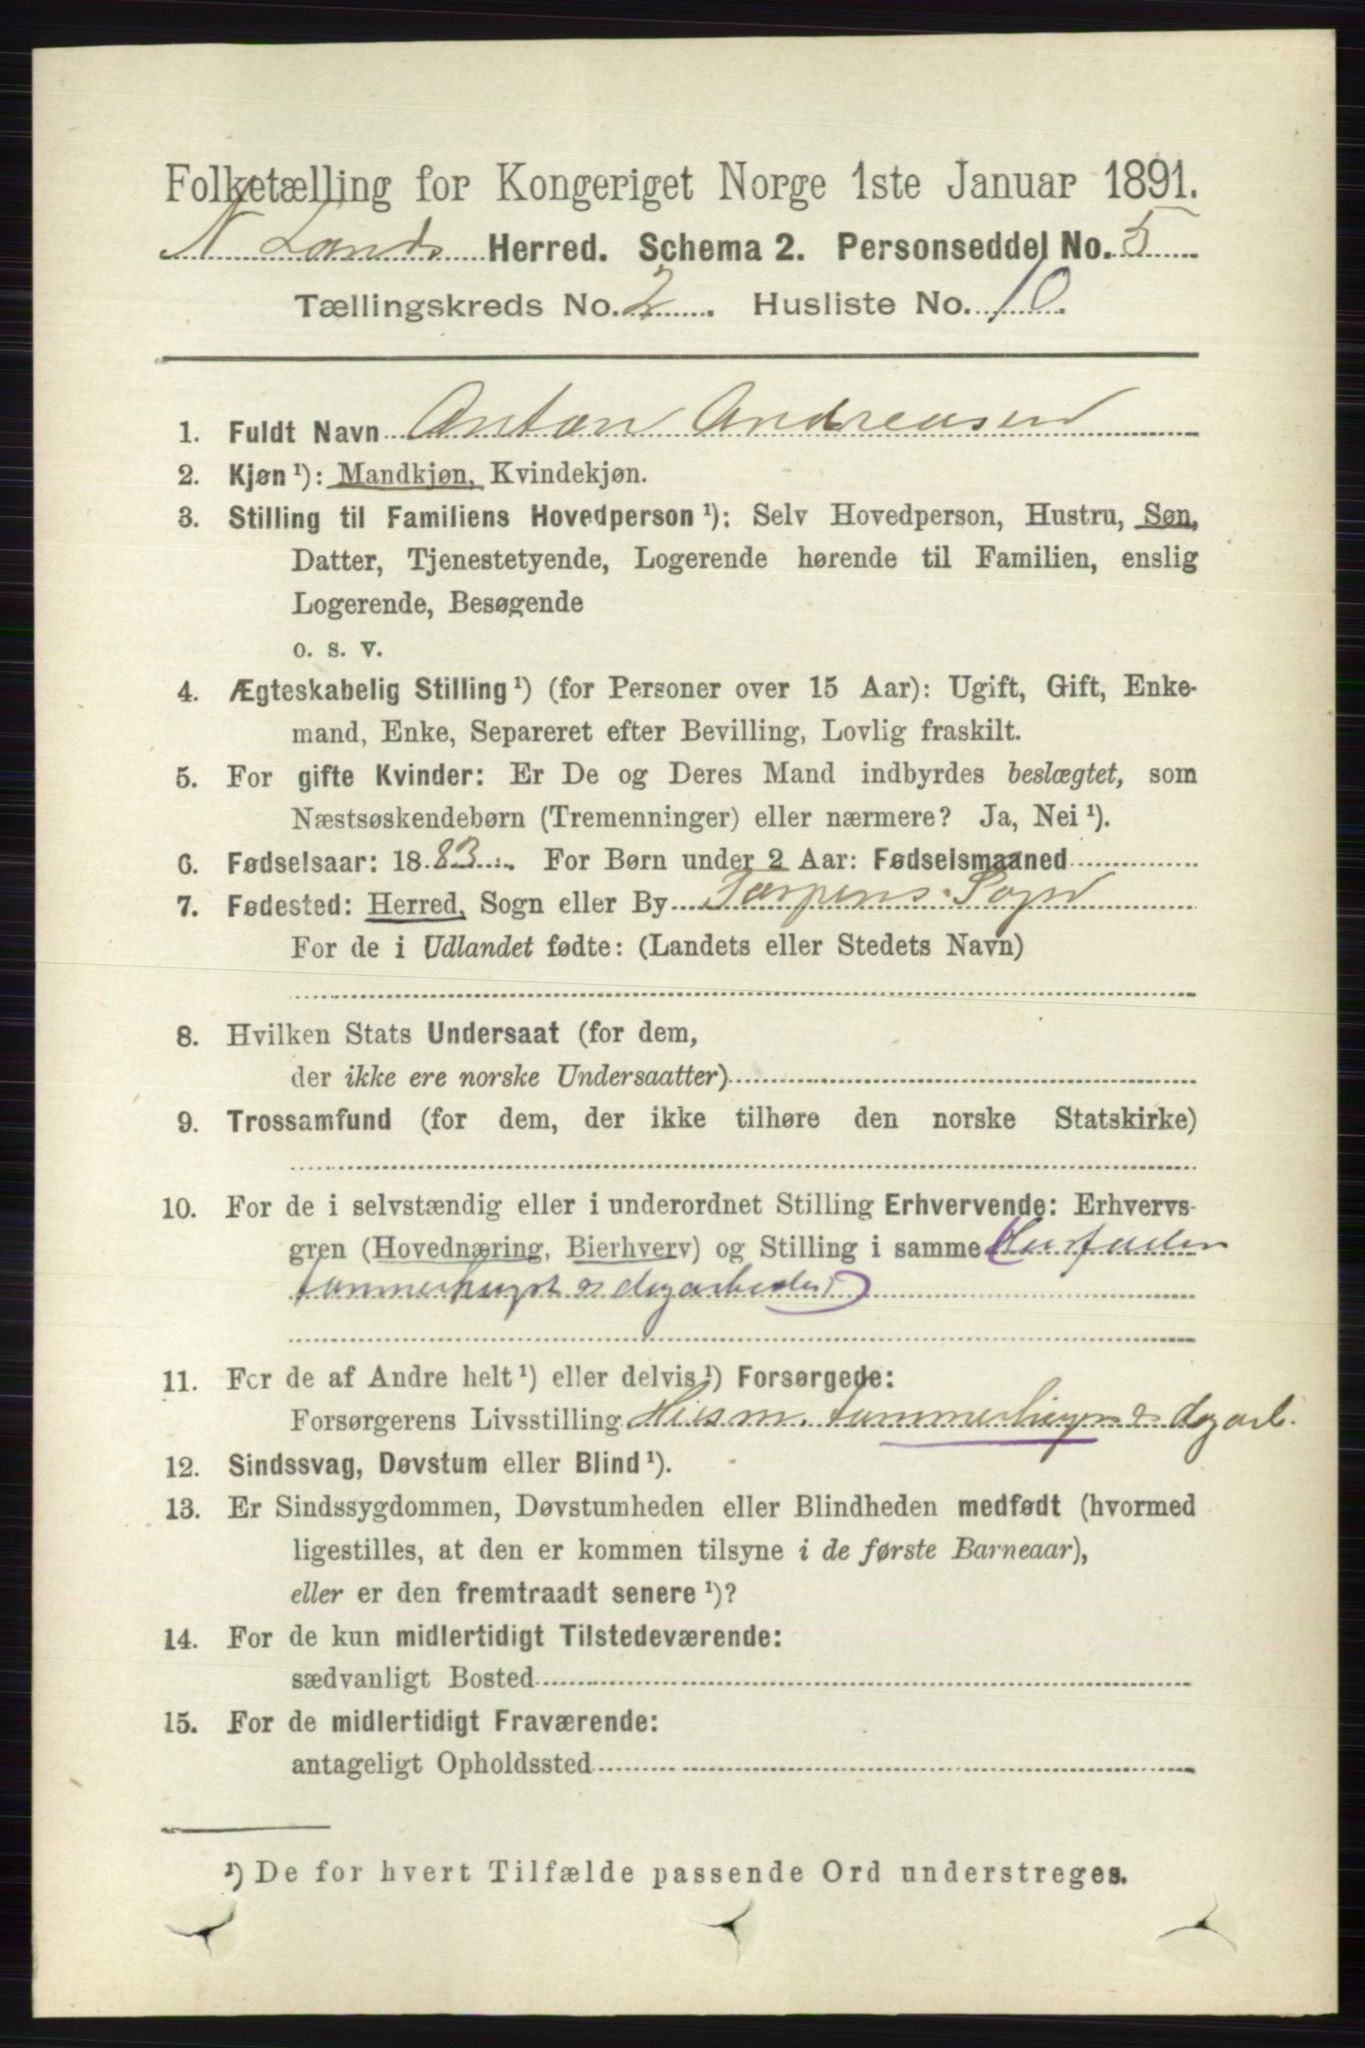 Folketælling for Kongeriget Norge 1ste Januar 1891.
N Lands Herred. Schema 2. Personseddel No. 5
Tællingskreds No. 2. Husliste No. 10.
1. Fuldt Navn Anton Andreasen
2. Kjøn ¹): Mandkjøn, Kvindekjøn.
3. Stilling til Familiens Hovedperson ¹): Selv Hovedperson, Hustru, Søn,
Datter, Tjenestetyende, Logerende hørende til Familien, enslig
Logerende, Besøgende
o. s. v.
4. Ægteskabelig Stilling ¹) (for Personer over 15 Aar): Ugift, Gift, Enke-
mand, Enke, Separeret efter Bevilling, Lovlig fraskilt.
5. For gifte Kvinder: Er De og Deres Mand indbyrdes beslægtet, som
Næstsøskendebørn (Tremenninger) eller nærmere? Ja, Nei ¹).
6. Fødselsaar: 1883. For Børn under 2 Aar: Fødselsmaaned
7. Fødested: Herred, Sogn eller By Torpens Sogn
For de i Udlandet fødte: (Landets eller Stedets Navn)
8. Hvilken Stats Undersaat (for dem,
der ikke ere norske Undersaatter)
9. Trossamfund (for dem, der ikke tilhøre den norske Statskirke)
10. For de i selvstændig eller i underordnet Stilling Erhvervende: Erhvervs-
gren (Hovednæring, Bierhverv) og Stilling i samme (Husfader
tømmerhugst & dagarbeider)
11. For de af Andre helt ¹) eller delvis ¹) Forsørgede:
Forsørgerens Livsstilling Husm. tømmerhuger & dagarb.
12. Sindssvag, Døvstum eller Blind ¹).
13. Er Sindssygdommen, Døvstumheden eller Blindheden medfødt (hvormed
ligestilles, at den er kommen tilsyne i de første Barneaar),
eller er den fremtraadt senere ¹)?
14. For de kun midlertidigt Tilstedeværende:
sædvanligt Bosted
15. For de midlertidigt Fraværende:
antageligt Opholdssted
¹) De for hvert Tilfælde passende Ord understreges.